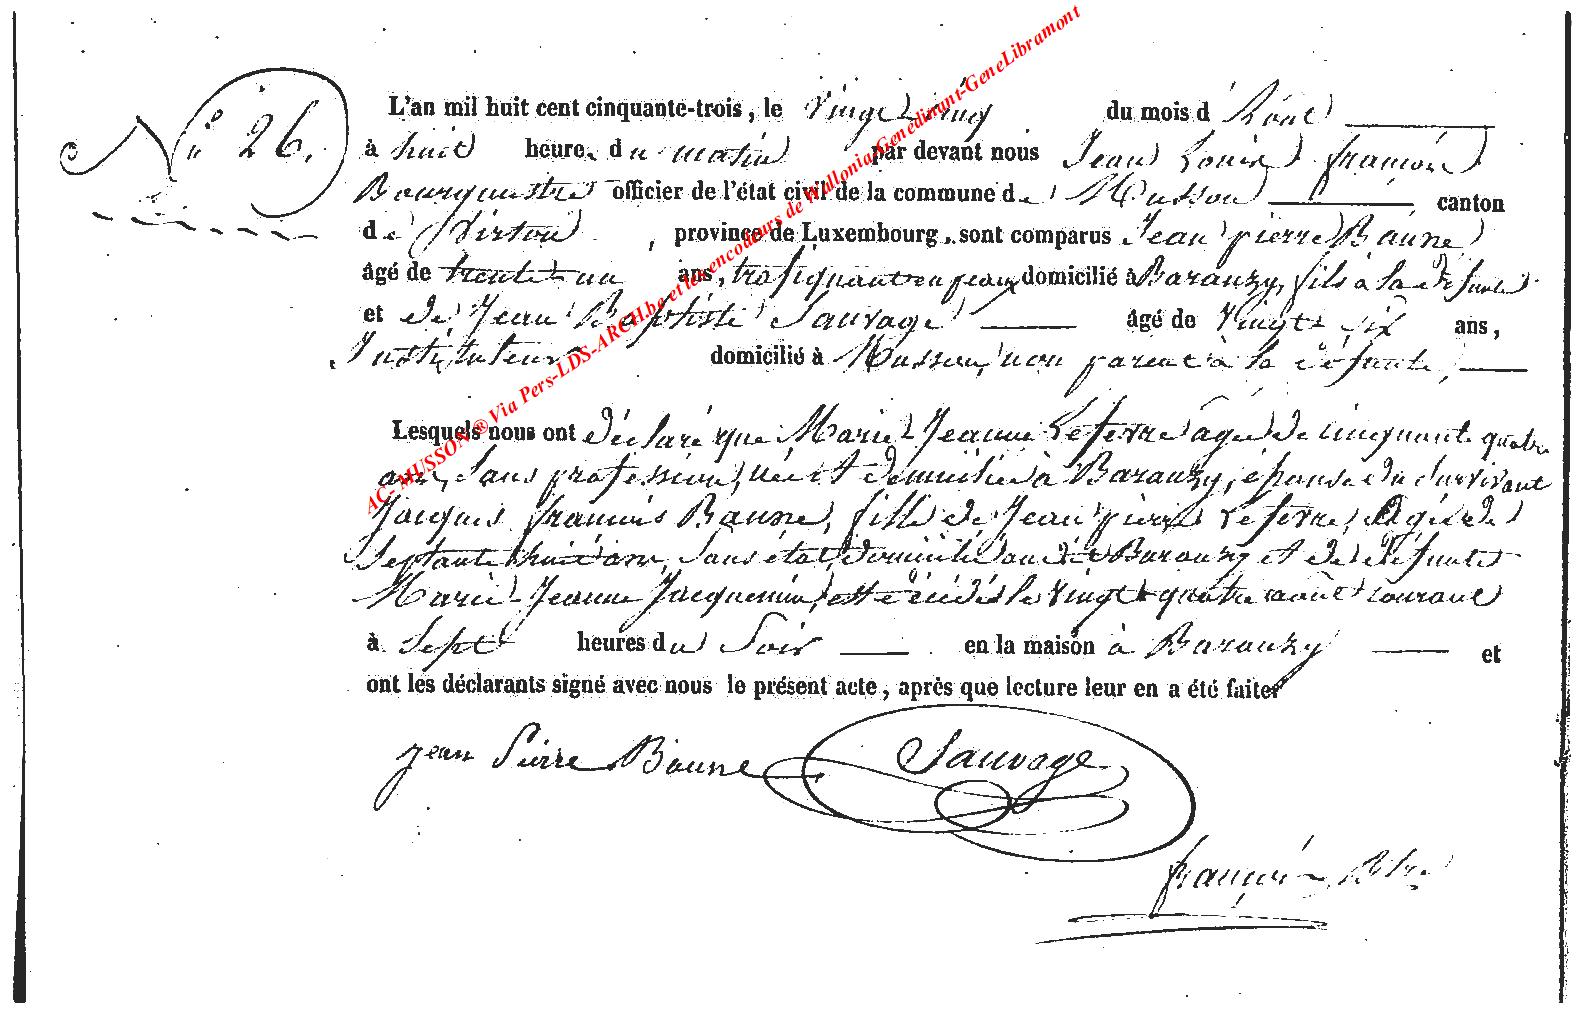 N° 26.
L'an mil huit cent cinquante-trois, le vingt cinq du mois d Août
à huit heures du matin par devant nous Jean Louis françois
Bourguestre officier de l'état civil de la commune de Musson canton
de Virton, province de Luxembourg, sont comparus Jean pierre Baune
âgé de trente-un ans, trafiquant en peaux domicilié à Baranzy, fils à la défunte
et de Jean Baptiste Sauvage âgé de vingt six ans,
Instituteur domicilié à Musson, non parent à la défunte,
Lesquels nous ont déclaré que Marie-Jeanne Lefevre âgée de cinquante quatre
ans, sans profession, née et domiciliée à Baranzy, épouse du survivant
Jacques françois Baune, fille de Jean pierre Lefevre, Agé de
septante huit ans, sans état, domicilié audit Baranzy et de défunte
Marie-Jeanne Jacquemin, est décédée le vingt-quatre août courant
à sept heures du soir en la maison à Baranzy et
ont les déclarants signé avec nous le présent acte, après que lecture leur en a été faite
jean Pierre Baune Sauvage
françois Btre
AC-MUSSON ® Via Pers-LDS-ARCH.be et les encodeurs de Wallonia-Genedinant-GeneLibramont